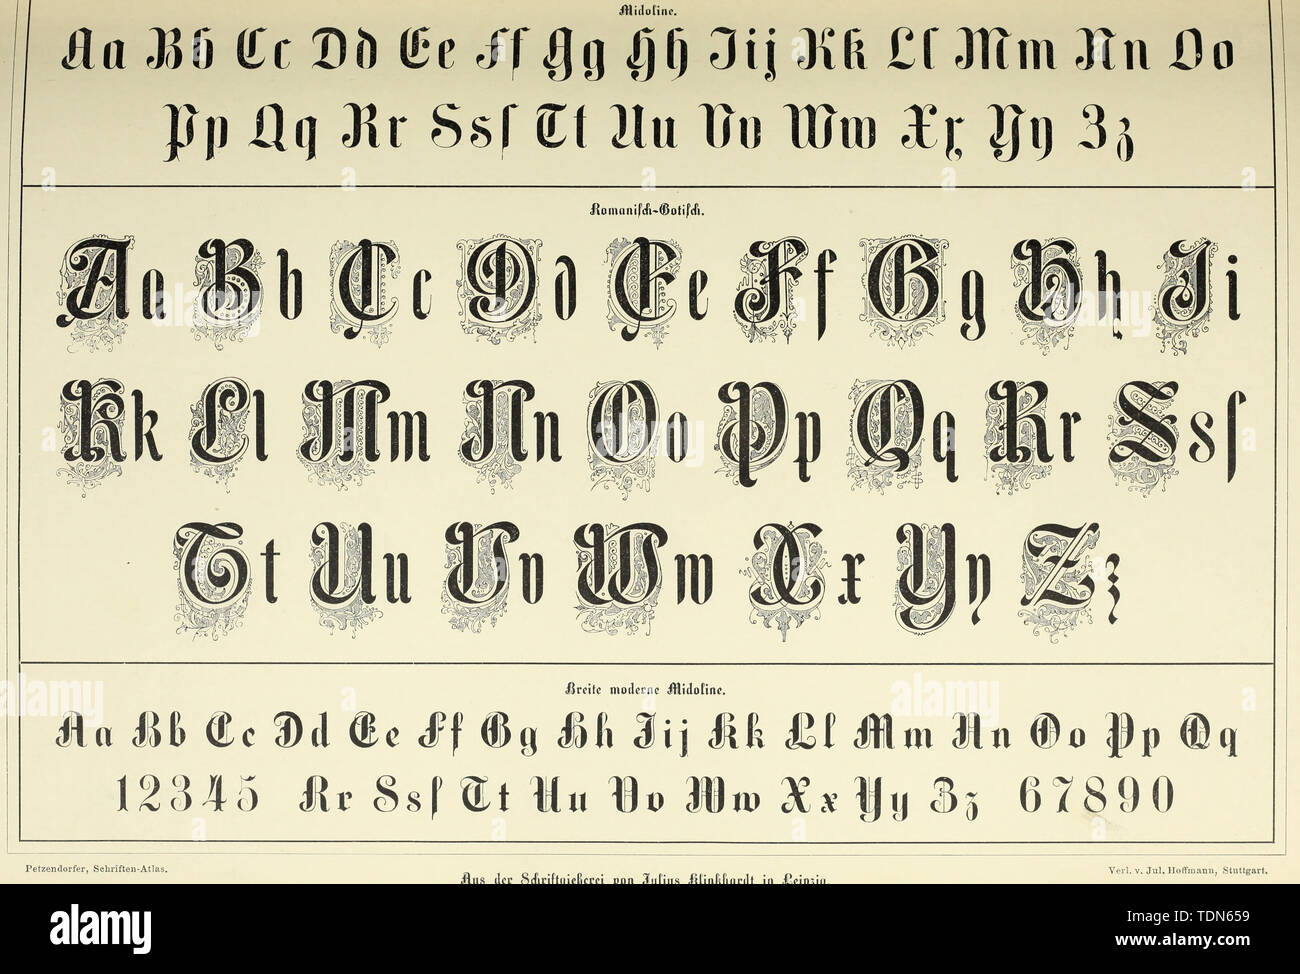 Midoline.
Aa Bb Cc Dd Ee Ff Gg Hh Iij Kk Ll Mm Nn Oo
Pp Qq Rr Ssſ Tt Uu Vv Ww Xx Yy Zz
Romaniſch-Gotiſch.
Aa Bb Cc Dd Ee Ff Gg Hh Ii
Kk Ll Mm Nn Oo Pp Qq Rr Ssſ
Tt Uu Vv Ww Xx Yy Zz
Breite moderne Midoline.
Aa Bb Cc Dd Ee Ff Gg Hh Iij Kk Ll Mm Nn Oo Pp Qq
12345 Rr Ssſ Tt Uu Vv Ww Xx Yy Zz 67890
Petzendorfer, Schriften-Atlas.
Verl. v. Jul. Hoffmann, Stuttgart.
Aus der Schriftgießerei von Julius Klinkhardt in Leipzig.
alamy
Image ID: TDN659
www.alamy.com